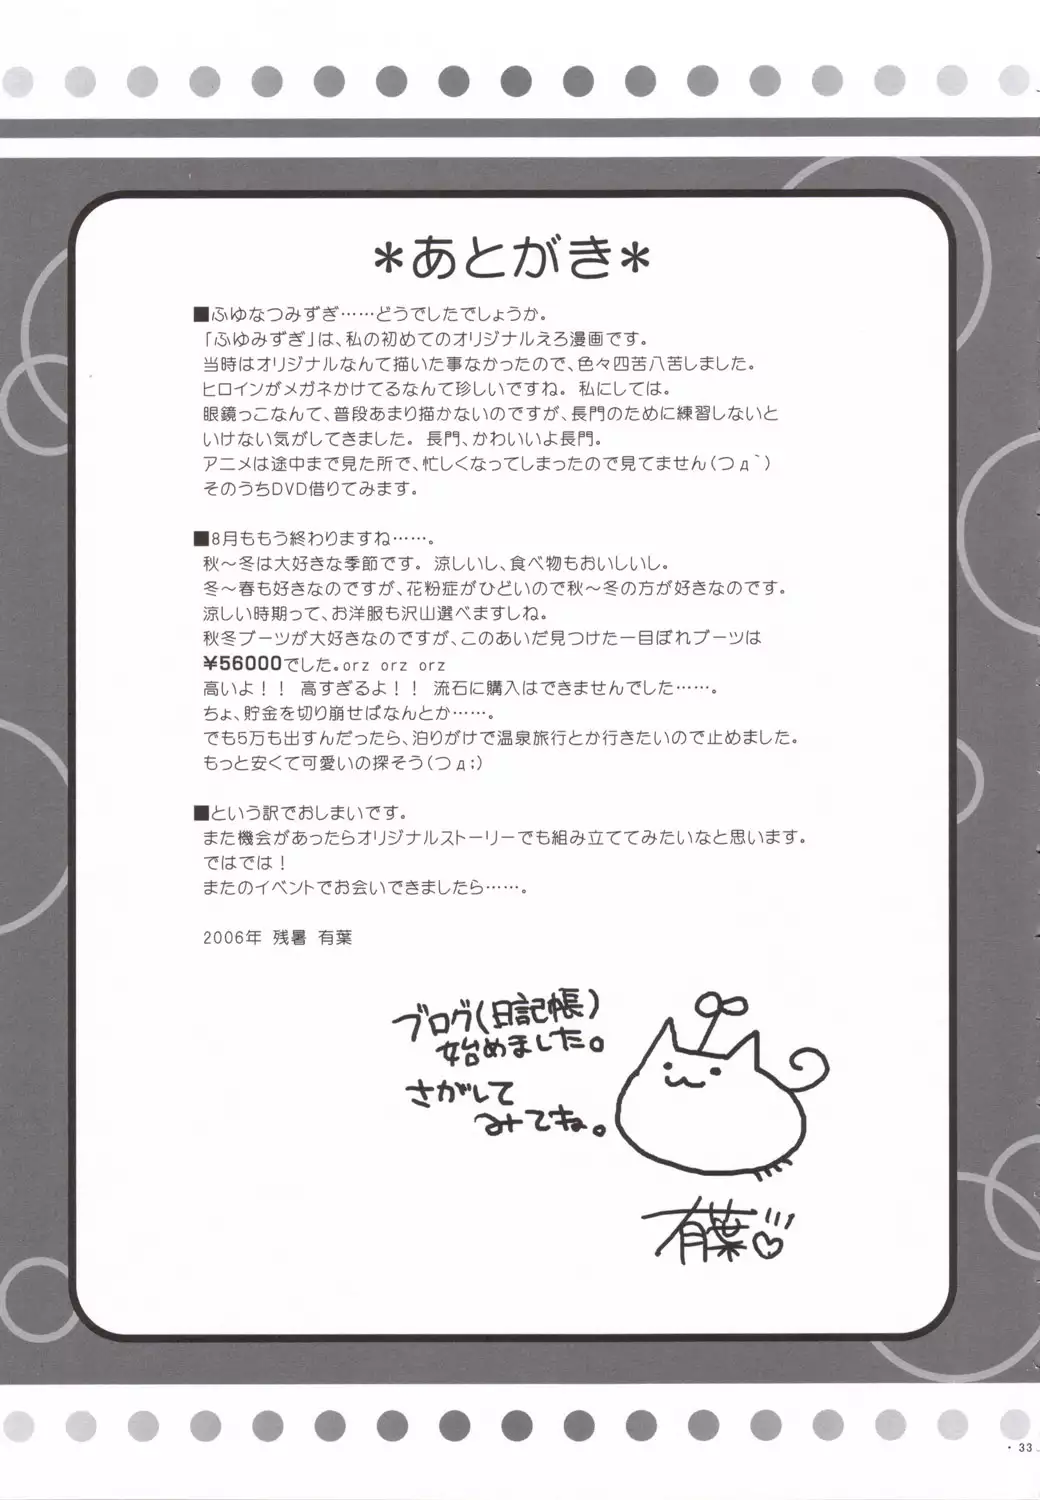 *あとがき*
■ふゆなつみずぎ……どうでしたでしょうか。
「ふゆみずぎ」は、私の初めてのオリジナルえろ漫画です。
当時はオリジナルなんて描いた事なかったので、色々四苦八苦しました。
ヒロインがメガネかけてるなんて珍しいですね。 私にしては。
眼鏡っこなんて、普段あまり描かないのですが、長門のために練習しないと
いけない気がしてきました。 長門、かわいいよ長門。
アニメは途中まで見た所で、忙しくなってしまったので見てません(つд`)
そのうちDVD借りてみます。
■8月ももう終わりますね……。
秋～冬は大好きな季節です。 涼しいし、食べ物もおいしいし。
冬～春も好きなのですが、花粉症がひどいので秋～冬の方が好きなのです。
涼しい時期って、お洋服も沢山選べますしね。
秋冬ブーツが大好きなのですが、このあいだ見つけた一目ぼれブーツは
¥56000でした。orz orz orz
高いよ！！ 高すぎるよ！！ 流石に購入はできませんでした……。
ちょ、貯金を切り崩せばなんとか……。
でも5万も出すんだったら、泊りがけで温泉旅行とか行きたいので止めました。
もっと安くて可愛いの探そう(つд;)
■という訳でおしまいです。
また機会があったらオリジナルストーリーでも組み立ててみたいなと思います。
ではでは！
またのイベントでお会いできましたら……。
2006年 残暑 有葉
ブログ(日記帳)
始めました。
さがして
みてね。
有葉♡
・33